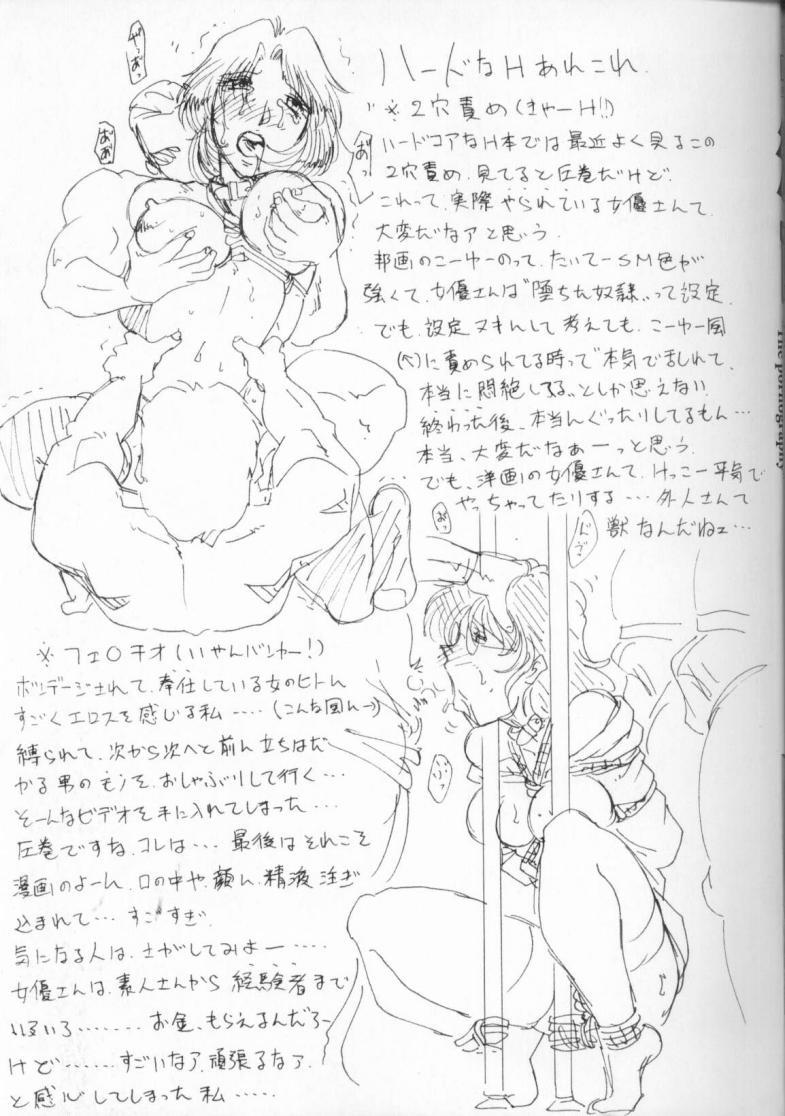 ハードなHあれこれ
※2穴責め(きゃーH!!)
ハードコアなH本では最近よく見るこの
2穴責め、見てると圧巻だけど
これって、実際やられている女優さんて、
大変だなァと思う
邦画のこーゆーのって、たいてーSM色が
強くて、女優さんは"堕ちた奴隷"って設定
でも、設定ヌキにして考えても、こーゆー風
に責められてる時って"本気で乱れて、
本当に悶絶してる"としか思えない
終わった後、本当にぐったりしてるもん…
本当、大変だなぁーっと思う
でも、洋画の女優さんて、けっこー平気で
やっちゃってたりする…外人さんて
獣なんだねェ…
おっ
おぉ
The pornography
※フェ○チオ(いやんバンカー!)
ボンデージされて、奉仕している女のヒトに
すごくエロスを感じる私…(こんな風に→)
縛られて、次から次へと前に立ちはだ
かる男のモノを、おしゃぶりして行く…
そーんなビデオを手に入れてしまった…
圧巻ですね、コレは…最後はそれこそ
漫画のよーに、口の中や、顔に、精液注ぎ
込まれて…すごすぎ
気になる人は、さがしてみよー……
女優さんは、素人さんから経験者まで
いろいろ………お金、もらえるんだろー
けど……すごいなァ、頑張るなァ、
と感心してしまった私……